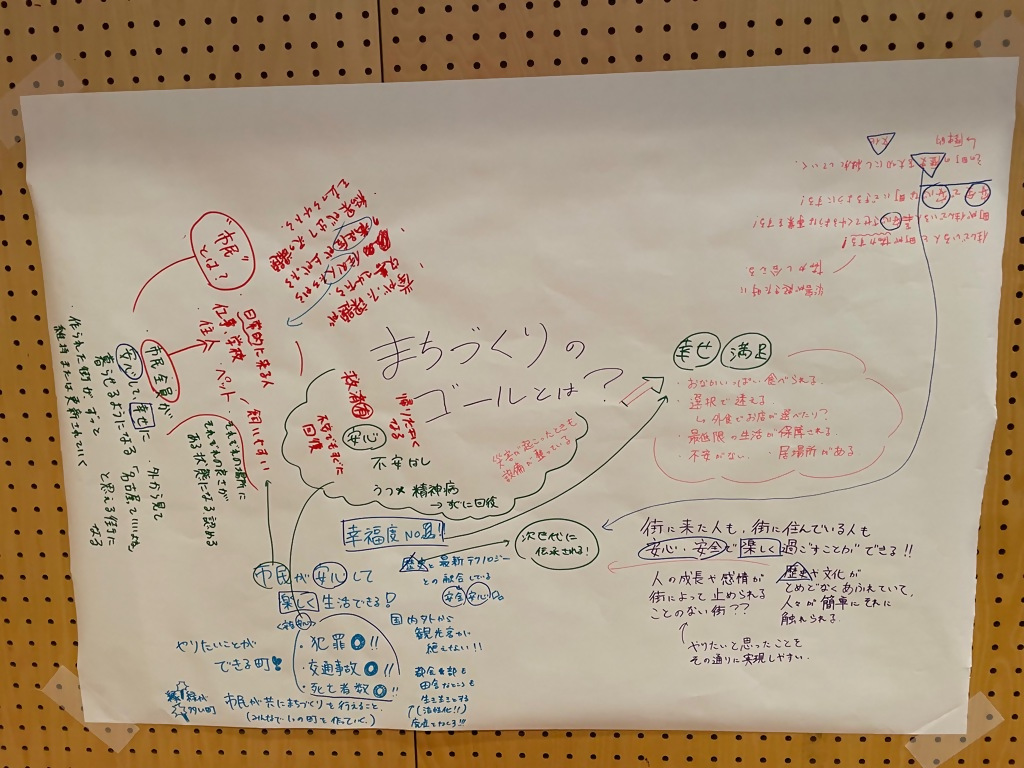 まちづくりの
ゴールとは?
"市民"
とは?
日常的に来る人
仕事、学校
住
ペット
市民全員が
安心して、幸せに
暮らせるようになる
・住られた街がずっと
維持または更新されていく
・外から見て
「名古屋っていいよね」
と思える街に
なる
それぞれの場所に
それぞれの良さが
ある状態になる、認める
安心
不安なし
帰りたくて
なる
うつ 精神病
→すぐに回復
災害が起こったときも
設備が整っている
幸せ 満足
・おなかいっぱい食べられる
・選択で迷える
↳外食でお店が選べたり?
・最低限の生活が保障される
・不安がない ・居場所がある
文化
この町の歴史を大切にし継続していく。
安全で安心な町にできるようにする!
住んでいる人と町が協力する!
災害が起きた時に
幸福度No.1!!
次世代に
伝承される!
市民が安心して
楽しく生活できる!
・犯罪0!!
・交通事故0!!
・死亡者数0!!
やりたいことが
できる町!
緑が
多い町
市民が共にまちづくりを行えること。
(みんなで1つの町を作っていく。)
歴史と最新テクノロジー
との融合している
安全 安心
国内外から
観光客が
絶えない!!
都会な部も
田舎なところも
(活性化!!)
街に来た人も、街に住んでいる人も
安心・安全で楽しく過ごすことができる!!
人の成長や感情が
街によって止められる
ことのない街??
↑
やりたいと思ったことを
その通りに実現しやすい.
歴史や文化が
とめどなくあふれていて、
人々が簡単にそれに
触れられる.